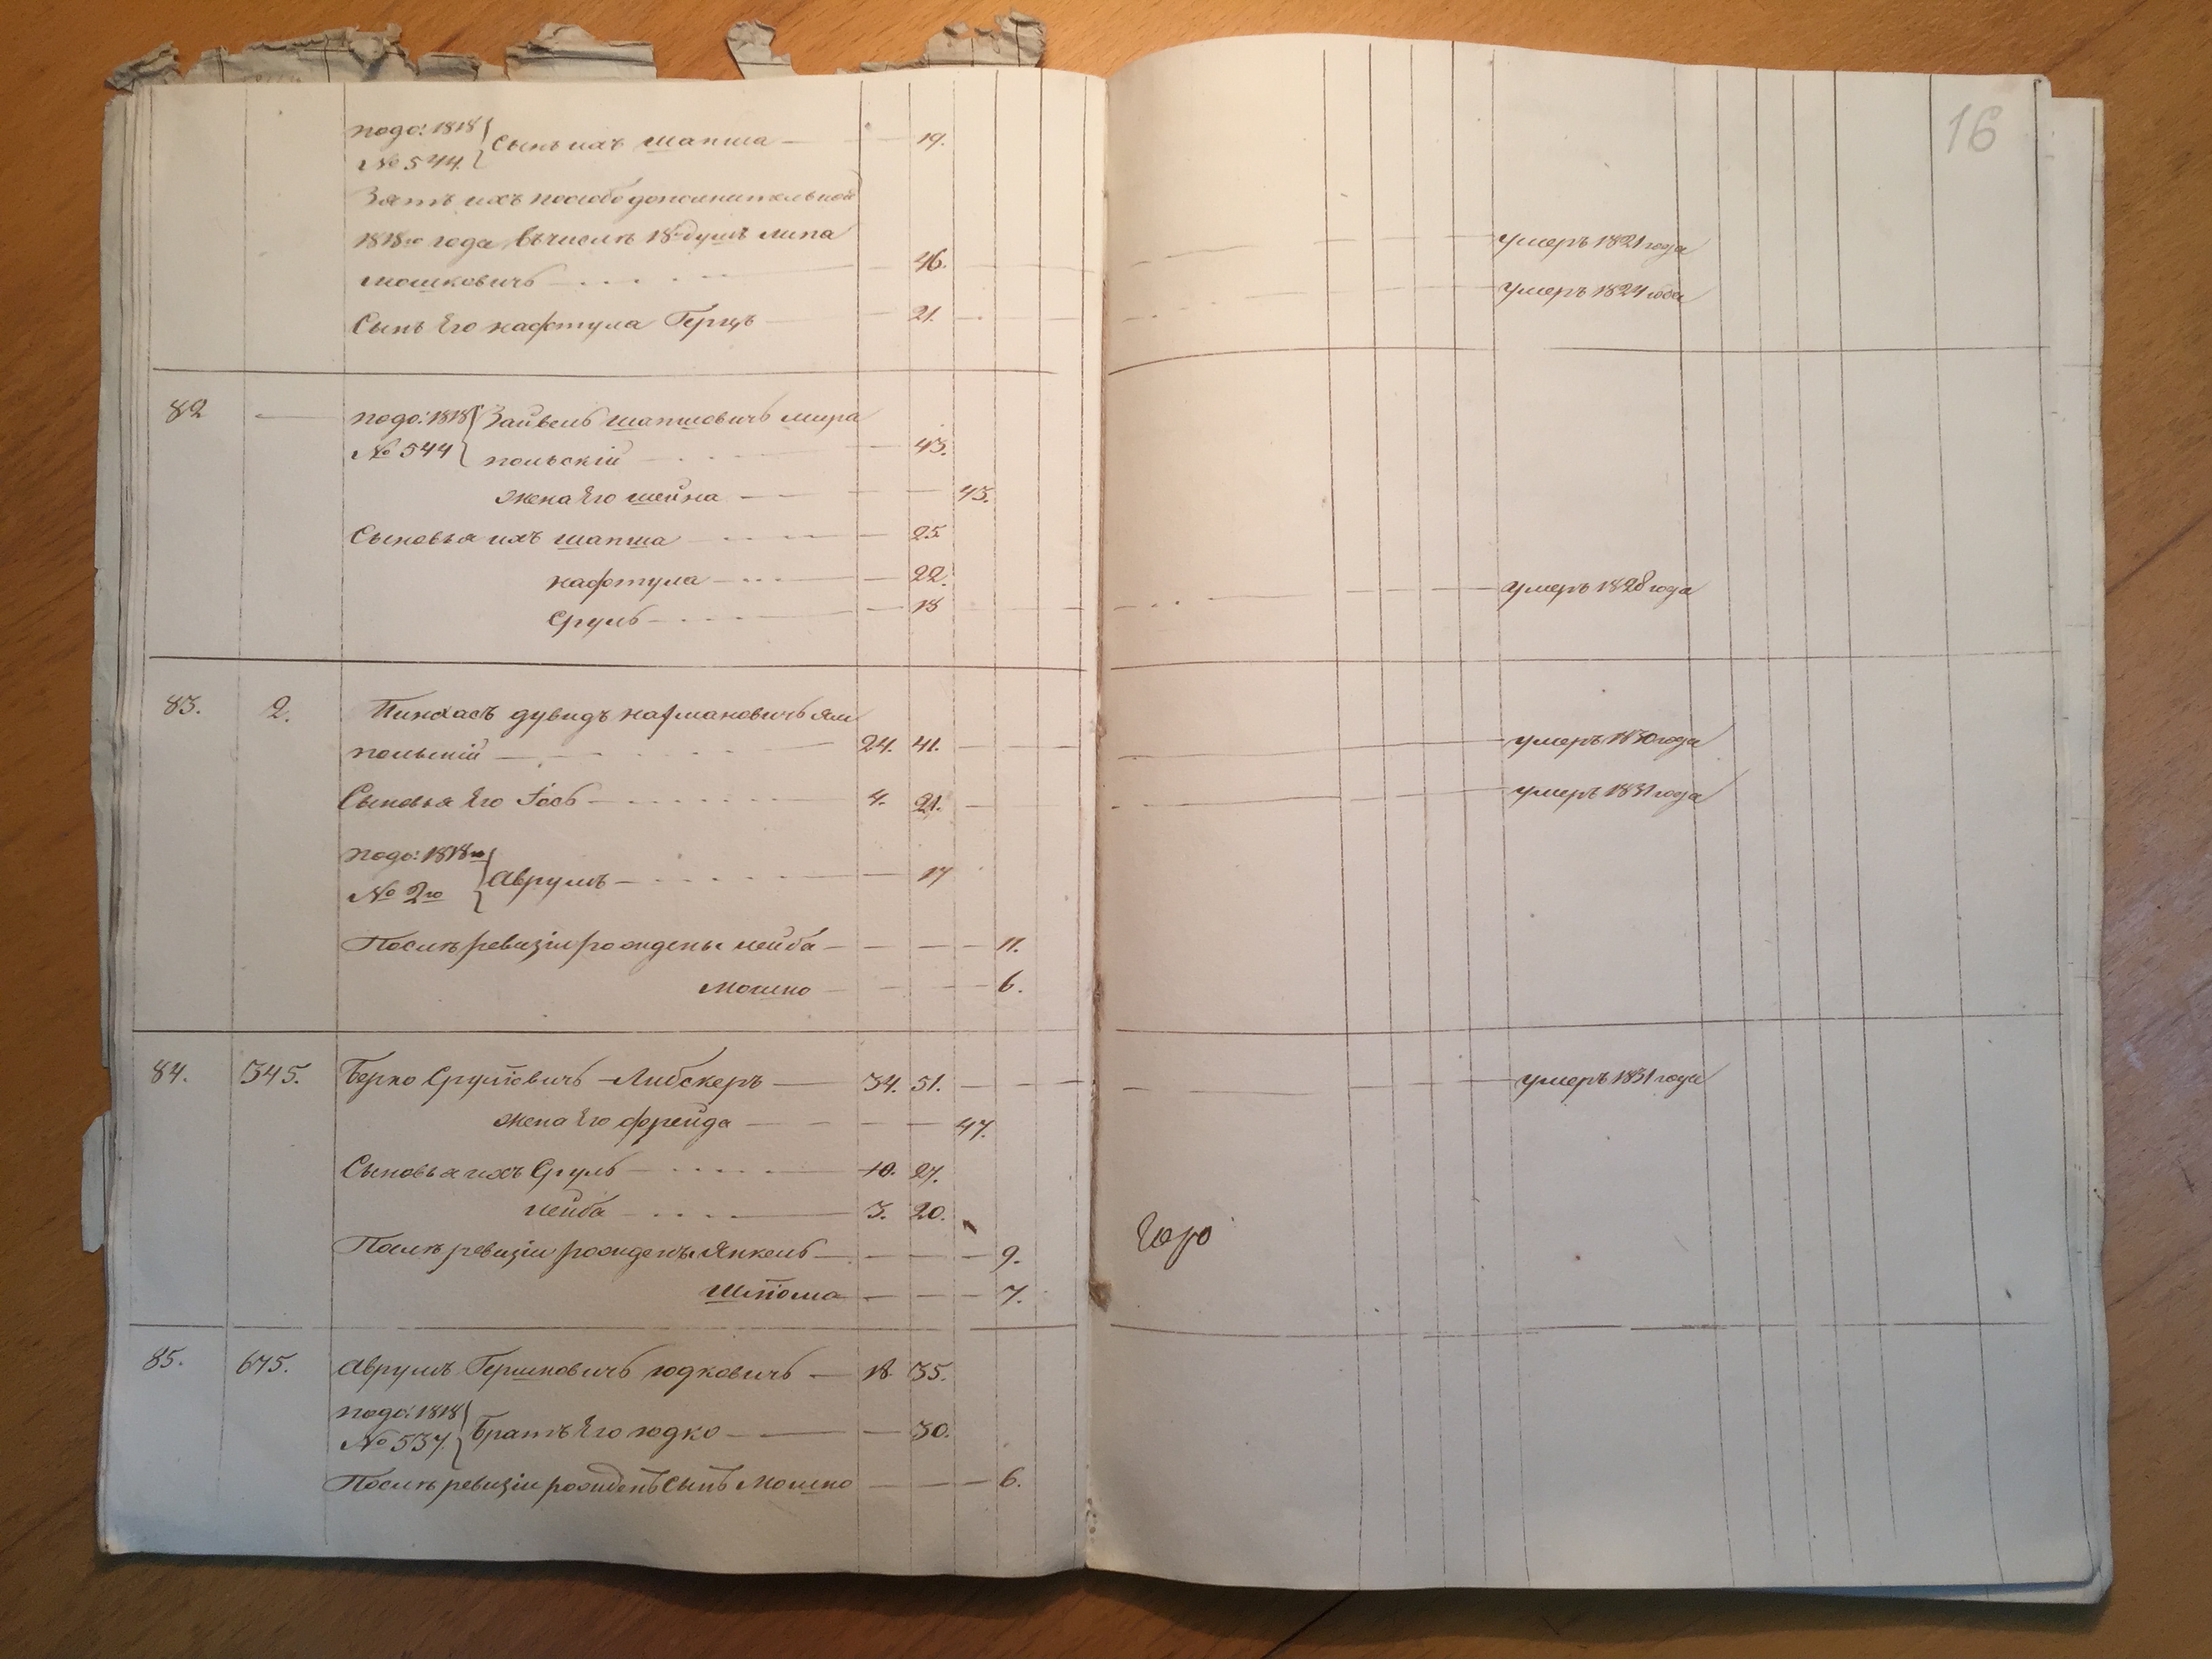 16
подо: 1818 Сынъ ихъ шапша 19.
№ 544.
Зять ихъ пособо дополнительной
1818го года въ числѣ 18 душъ липа
мошковичъ 46. умеръ 1821 года
Сынъ Его нафтула Герцъ 21. умеръ 1824 года
82 подо: 1818 Зайвель шапшовичъ мира
№ 544 польскій 43.
жена Его шейна 43.
Сыновья ихъ шапша 25
нафтула 22.
Сруль 18 умеръ 1828 года
83. 2. Пинхасъ дувидъ нахмановичъ ям
польскій 24. 41. умеръ 1830 года
Сыновья Его Іось 4. 21. умеръ 1831 года
подо: 1818го Аврумъ 17
№ 2го
Послѣ ревизіи рождены лейба 11.
мошко 6.
84. 345. Берко Срулiовичъ Либскеръ 34. 51. умеръ 1831 года
жена Его фрейда 47.
Сыновья ихъ Сруль 10. 27.
лейба 3. 20.
Послѣ ревизіи рождены Янкель 9.
шліома 7.
85. 675. Аврумъ Гершковичъ юдковичъ 18. 35.
подо: 1818 Братъ Его юдко 30.
№ 537.
Послѣ ревизіи рожденъ Сынъ Мошко 6.